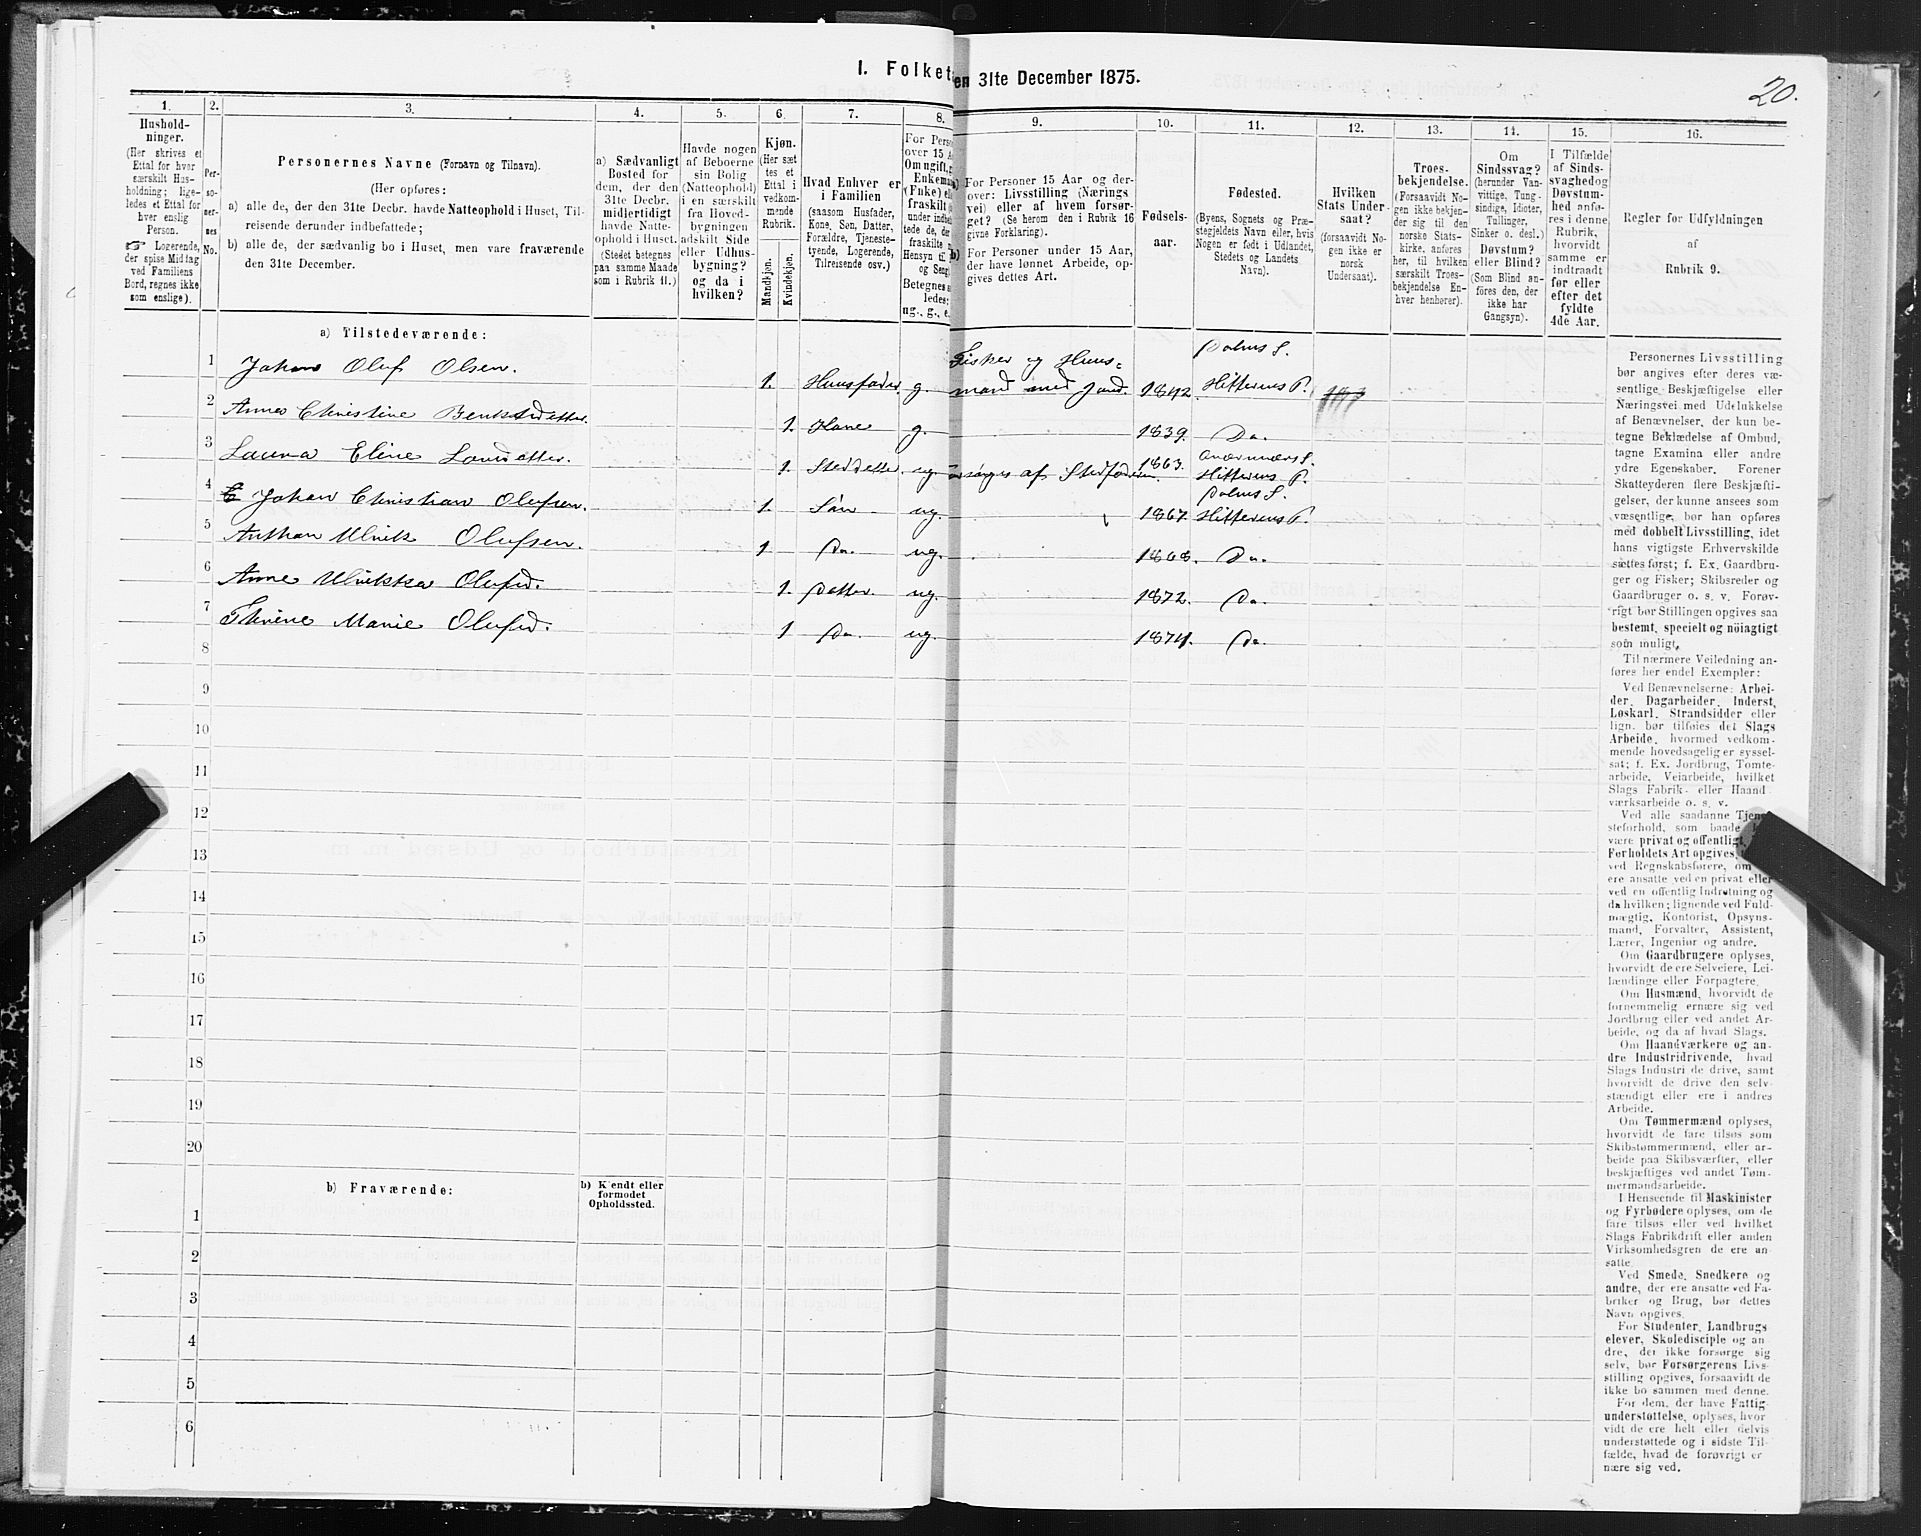 I. Folket
en 31te December 1875.
20.
1.
Husholdninger.
(Her skrives et Ettal for hver særskilt Husholdning; ligeledes et Ettal for hver enslig Person.
☞ Logerende, der spise Middag ved Familiens Bord, regnes ikke som enslige).
2.
Personernes No.
3.
Personernes Navne (Fornavn og Tilnavn).
(Her opføres:
a) alle de, der den 31te Decbr. havde Natteophold i Huset, Tilreisende derunder indbefattede;
b) alle de, der sædvanlig bo i Huset, men vare fraværende den 31te December.
4.
a) Sædvanligt Bosted for dem, der den 31te Decbr. midlertidigt havde Natteophold i Huset.
(Stedet betegnes paa samme Maade som i Rubrik 11.)
5.
Havde nogen af Beboerne sin Bolig (Natteophold) i en særskilt fra Hovedbygningen adskilt Side eller Udhusbygning? og da i hvilken?
6.
Kjøn.
(Her sættes et Ettal i vedkommende Rubrik.
Mandkjøn.
Kvindekjøn.
7.
Hvad Enhver er i Familien
(saasom Husfader, Kone, Søn, Datter, Forældre, Tjenestetyende, Logerende, Tilreisende osv.)
8.
For Perso
over 15 A
Om ugift, g
Enkema
(Enke) e
fraskilt
under indbe
tede de, der
fraskilte
Hensyn til
og Seng
Betegnes s
ledes:
ug., g., e.
9.
a) For Personer 15 Aar og derover: Livsstilling (Næringsvei) eller af hvem forsørget? (Se herom den i Rubrik 16 givne Forklaring).
b) For Personer under 15 Aar, der have lønnet Arbeide, opgives dettes Art.
10.
Fødselsaar.
11.
Fødested.
(Byens, Sognets og Præstegjeldets Navn eller, hvis Nogen er født i Udlandet, Stedets og Landets Navn).
12.
Hvilken Stats Undersaat?
(forsaavidt Nogen ikke er norsk Undersaat).
13.
Troesbekjendelse.
(Forsaavidt Nogen ikke bekjender sig til den norske Statskirke, anføres her, til hvilken særskilt Troesbekjendelse Enhver henhører).
14.
Om Sindssvag?
(herunder Vanvittige, Tungsindige, Idioter, Tullinger, Sinker o. desl.)
Døvstum? eller Blind?
(Som Blind anføres den, der ikke har Gangsyn).
15.
I Tilfælde af Sindssvaghed og Døvstumhed anføres i denne Rubrik, hvorvidt samme er indtraadt før eller efter det fyldte 4de Aar.
16.
Regler for Udfyldningen af Rubrik 9.
a) Tilstedeværende:
1 Johan Oluf Olsen. 1. Huusfader. g. Fisker og Huusmand med Jord. 1842. Dolms S. Hitterens P.
2 Anne Christine Benktsdatter. 1. Kone g. 1839. Do.
3 Laura Eline Larsdatter. 1. Steddatter. ug. Forsørges af Stedfaderen. 1863. Hitterens P.
4 Johan Christian Olufsen. 1. Søn ug. 1867. Dolms S. Hitterens P.
5 Anthon Ulrik Olufsen. 1 Do. ug. 1868. Do.
6 Anne Ulrikka Olufsd. 1. Datter. ug. 1872. Do.
7 Thrine Marie Olufsd. 1 Do. ug. 1874. Do.
8
9
10
11
12
13
14
15
16
17
18
19
20
b) Fraværende:
b) Kendt eller formodet Opholdssted.
1
2
3
4
5
6
Personernes Livsstilling
bør angives efter deres væ-
sentlige Beskjæftigelse eller
Næringsvei med Udelukkelse
af Benævnelser, der kun be-
tegne Beklædelse af Ombud,
tagne Examina eller andre
ydre Egenskaber. Forener
Skatteyderen flere Beskjæfti-
gelser, der kunne ansees som
væsentlige, bør han opføres
med dobbelt Livsstilling, idet
hans vigtigste Erhvervskilde
sættes først; f. Ex. Gaardbru-
ger og Fisker; Skibsreder og
Gaardbruger o. s. v. Forøv-
rigt bør Stillingen opgives saa
bestemt, specielt og nöiagtigt
som muligt.
Til nærmere Veiledning an-
føres her endel Exempler:
Ved Benævnelserne: Arbei-
der, Dagarbeider, Inderst,
Løskarl, Strandsidder eller
lign. bør tilføies det Slags
Arbeide, hvormed vedkom-
mende hovedsagelig er syssel-
sat; f. Ex. Jordbrug, Tomte-
arbeide, Veiarbeide, hvilket
Slags Fabrik- eller Haand-
værksarbeide o. s. v.
Ved alle saadanne Tjene-
steforhold, som baade
være privat og offentligt,
Forholdets Art opgives,
ved Regnskabsførere, om
ere ansatte ved en privat eller
ved en offentlig Indretning og
da hvilken; lignende ved Fuld-
mægtig, Kontorist, Opsyns-
mand, Forvalter, Assistent,
Lærer, Ingeniør og andre.
Om Gaardbrugere oplyses,
hvorvidt de ere Selveiere, Lei-
lændinge eller Forpagtere.
Om Husmænd, hvorvidt de
fornemmelig ernære sig ved
Jordbrug eller ved andet Ar-
beide, og da af hvad Slags.
Om Haandværkere og an-
dre Industridrivende, hvad
Slags Industri de drive, samt
hvorvidt de drive den selv-
stændigt eller ere i andres
Arbeide.
Om Tømmermænd oplyses,
hvorvidt de fare tilsøs som
Skibstømmermænd, eller ar-
beide paa Skibsværfter, eller
beskjæftiges ved andet Tøm-
mermandsarbeide.
I Henseende til Maskinister
og Fyrbødere oplyses, om de
fare tilsøs eller ved hvilket
Slags Fabrikdrift eller anden
Virksomhedsgren de ere an-
satte.
Ved Smede, Snedkere og
andre, der ere ansatte ved Fa-
briker og Brug, bør dettes
Navn opgives.
For Studenter, Landbrugs-
elever, Skoledisciple og an-
dre, der ikke forsørge sig
selv, bør Forsørgerens Livs-
stilling opgives, forsaavidt de
ikke bo sammen med denne.
For dem, der have Fattig-
understøttelse, oplyses, hvor-
vidt de ere helt eller delvis
understøttede og i sidste Til-
fælde, hvad de forøvrigt er-
nære sig ved.